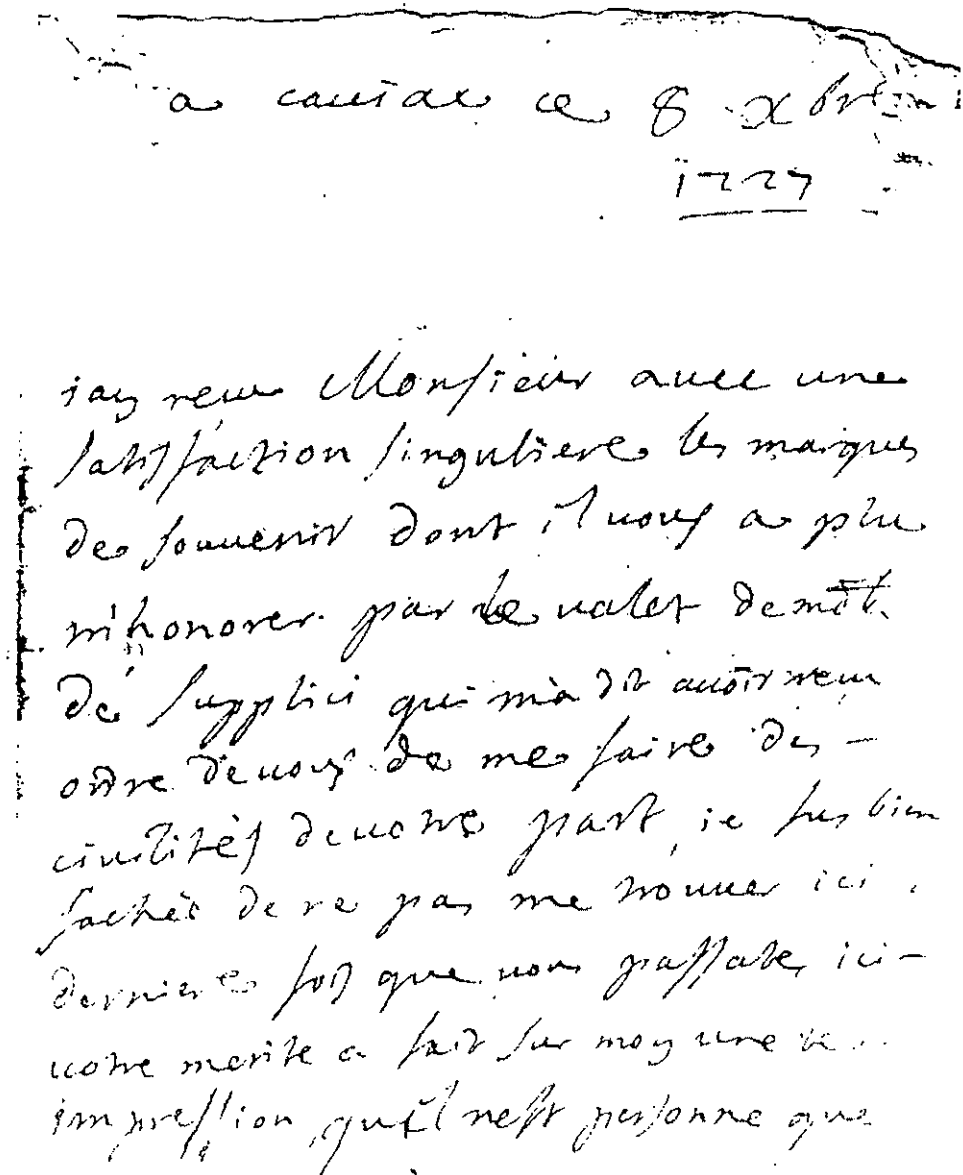 a ce 8 xbre
1727
iay receu Monsieur avec une
satisfaction singuliere les marques
de souvenir dont il vous a plu
m'honorer par le valet de
de qui m'a dit avoir receu
ordre de vous de me faire des -
civilités de votre part, ie fus bien
faché de ne pas me trouver ici
derniere fois que vous passates ici -
votre merite a fait sur moy une
impression qu'il nest personne que